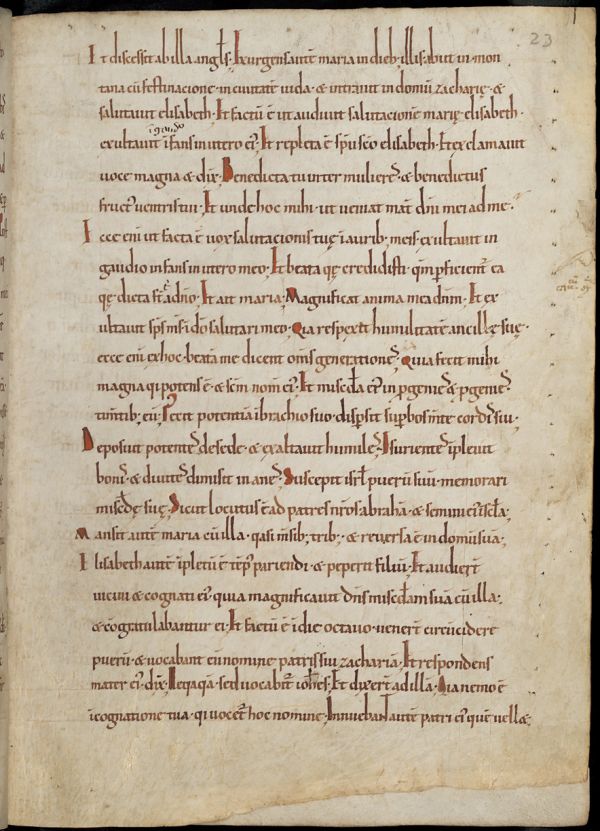 23
Et discessit ab illa angl̅s. Exurgens aut̅ maria in dieb; illis. abiit in mon
tana cu̅ festinacione. in ciuitate̅ iuda. & intrauit in domu̅ zacharię. &
salutauit elisabeth. Et factu̅ e̅ ut audiuit salutatione̅ marię elisabeth.
exultauit i̅fans in utero ei᾽. Et repleta e̅ sp̅u sc̅o elisabeth. Et exclamauit
uoce magna & dix̅. Benedicta tu inter muliere᾽. & benedictus
fruct᾽ uentris tui. Et unde hoc mihi. ut ueniat mat̅ dn̅i mei ad me.
Ecce eni̅ ut facta e̅ uox salutacionis tuę i̅ aurib; meis. exultauit in
gaudio infans in utero meo. Et beata qę credidisti. qm̅ p̲ficient᾽ ea
qę dicta s̅t a dn̅o. Et ait maria. Magnificat anima mea dn̅m. Et ex
ultauit sp̅s m̅s i̅ do̅ salutari meo. Qia respexit humilitate̅ ancillę suę.
ecce eni̅ ex hoc. beata̅ me dicent om̅s generatione᾽. Quia fecit mihi
magna qi potens e̅. & sc̅m nom̅ ei᾽. Et misc̅dia ei᾽ in p̲genie᾽ & p̲genie᾽
tim̅tib; eu̅. Fecit potentia̅ i̅ brachio suo. disp̲sit sup̲bos m̅te cordi᾽ sui.
Deposuit potente᾽ de sede. & exaltauit humile᾽. Esuriente᾽ i̅pleuit
boni᾽. & diuite᾽ dimisit inane᾽. Suscepit isrl̅ pueru̅ suu̅. memorari
misc̅dię suę. Sicut locutus e̅ ad patres nr̅os. abraha̅. & semini ei᾽ i̅ sc̅la.
Mansit aut̅ maria cu̅ illa. qasi m̅sib; trib;. & reuersa e̅ in domu̅ sua̅.
Elisabeth aut̅ i̅pletu̅ e̅ te̅p᾽ pariendi. & peperit filiu̅. Et audier̅t
uicini & cognati ei᾽. quia magnificauit dn̅s misc̅dia̅ sua̅ cu̅ illa.
& co̅gratulabantur ei. Et factu̅ e̅ i̅ die octauo. uener̅t circu̅cidere
pueru̅. & uocabant eu̅ nomine patris sui zacharia̅. Et respondens
mater ei᾽. dix̅. Neqaqa̅. sed uocabit᾽ ioh̅es. Et dixer̅t ad illa̅. Qia nemo e̅
i̅ cognatione tua. qi uocet᾽ hoc nomine. Innuebant aut̅ patri ei᾽ que̅ uell&